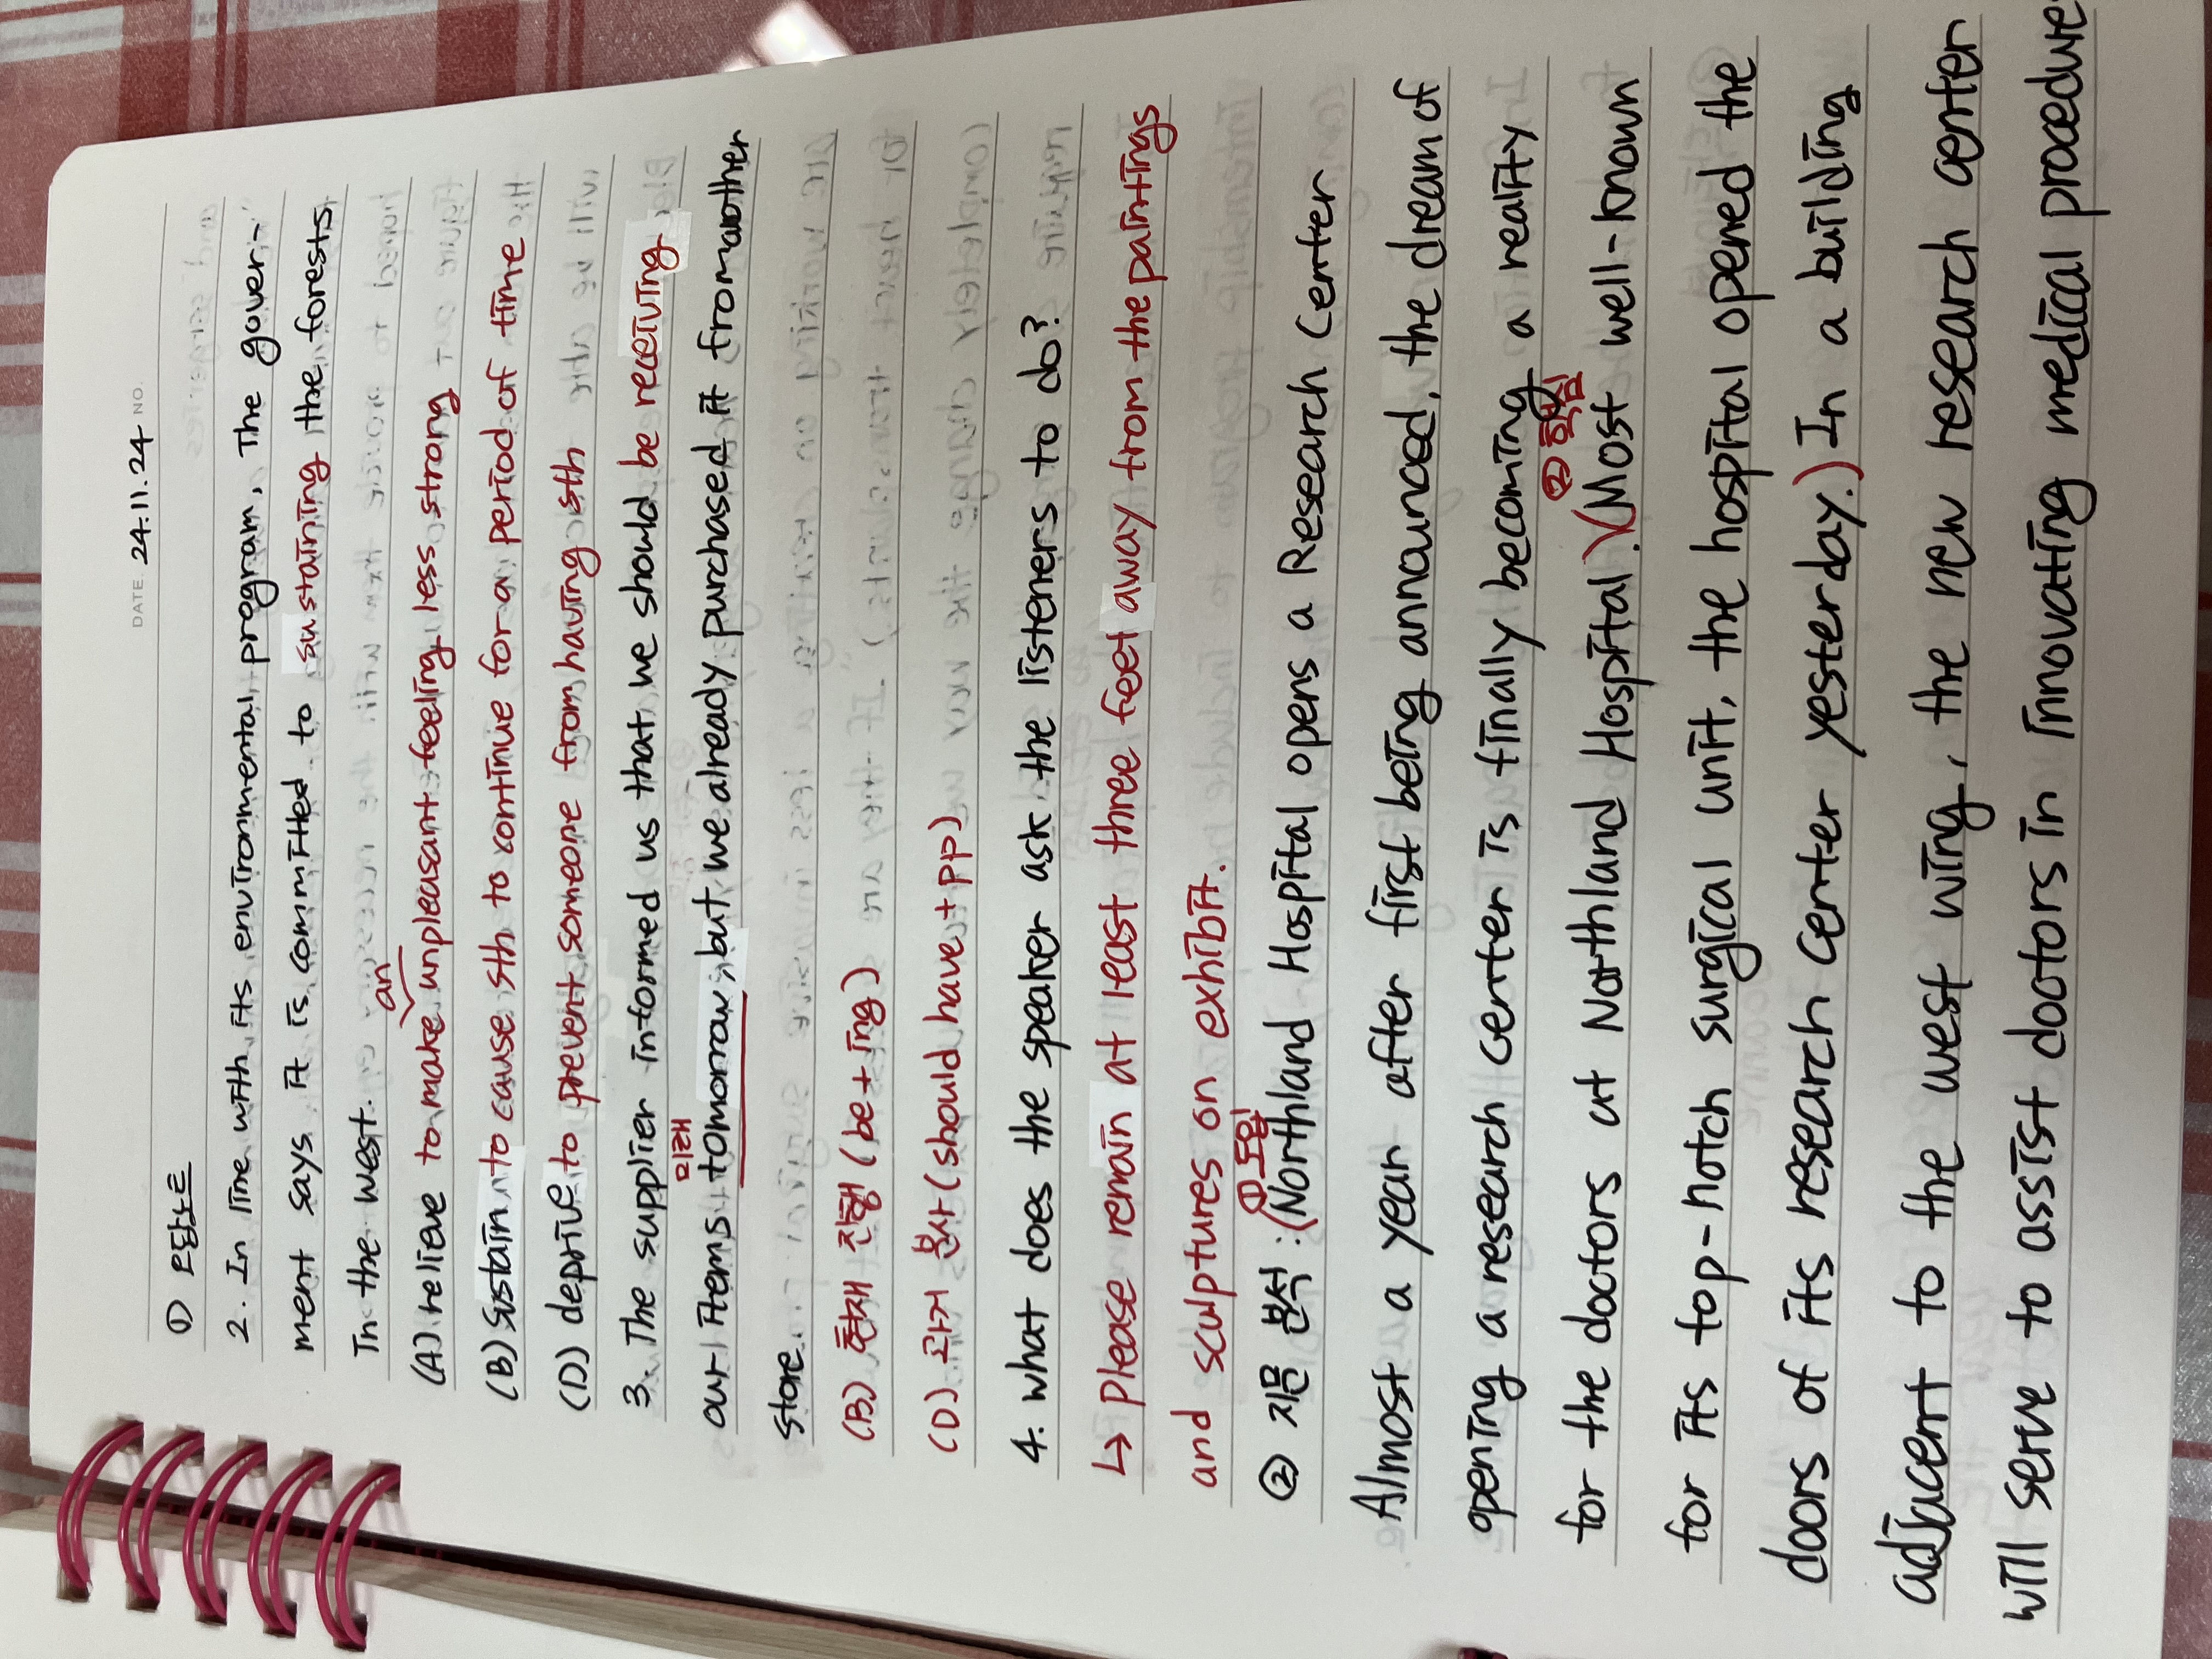 DATE. 24.11.24 NO.
① 오답노트
2. In line with its environmental program, the govern-
ment says it is committed to sustaining the forests
in the west.
an
(A) relieve to make unpleasant feeling less strong
(B) sustain to cause sth to continue for a period of time
(D) deprive to prevent someone from having sth
3. The supplier informed us that we should be receiving
미래
our items tomorrow, but we already purchased it from another
store.
(B) 현재 진행 (be + ing)
(D) 과거 분사 (should have + pp)
4. what does the speaker ask the listeners to do?
↳ please remain at least three feet away from the paintings
and sculptures on exhibit.
① 도입
② 지문 분석 : (Northland Hospital opens a Research Center
Almost a year after first being announced, the dream of
opening a research center is finally becoming a reality
② 핵심
for the doctors at Northland Hospital.) (Most well-known
for its top-notch surgical unit, the hospital opened the
doors of its research center yesterday.) In a building
adjacent to the west wing, the new research center
will serve to assist doctors in innovating medical procedure